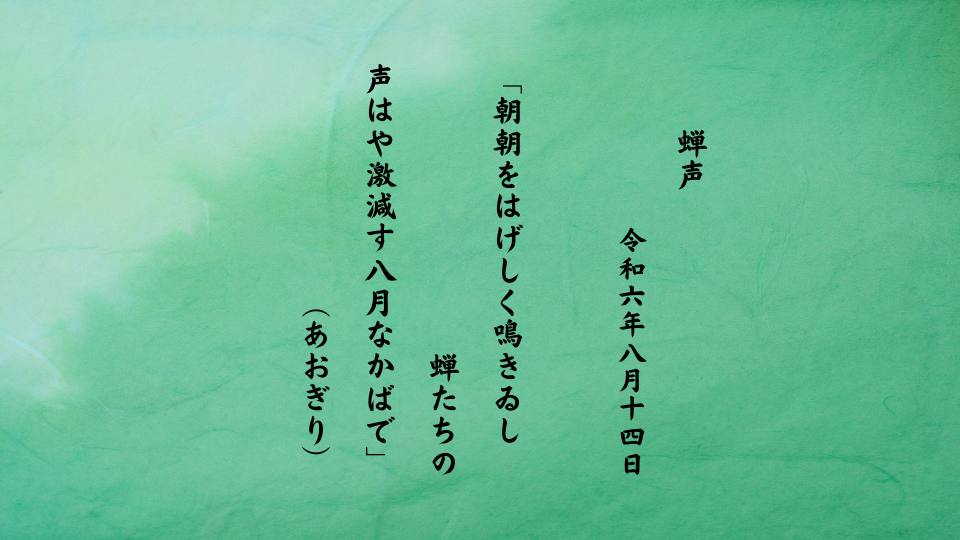 蝉声
令和六年八月十四日
「朝朝をはげしく鳴きゐし
蝉たちの
声はや激減す八月なかばで」
（あおぎり）